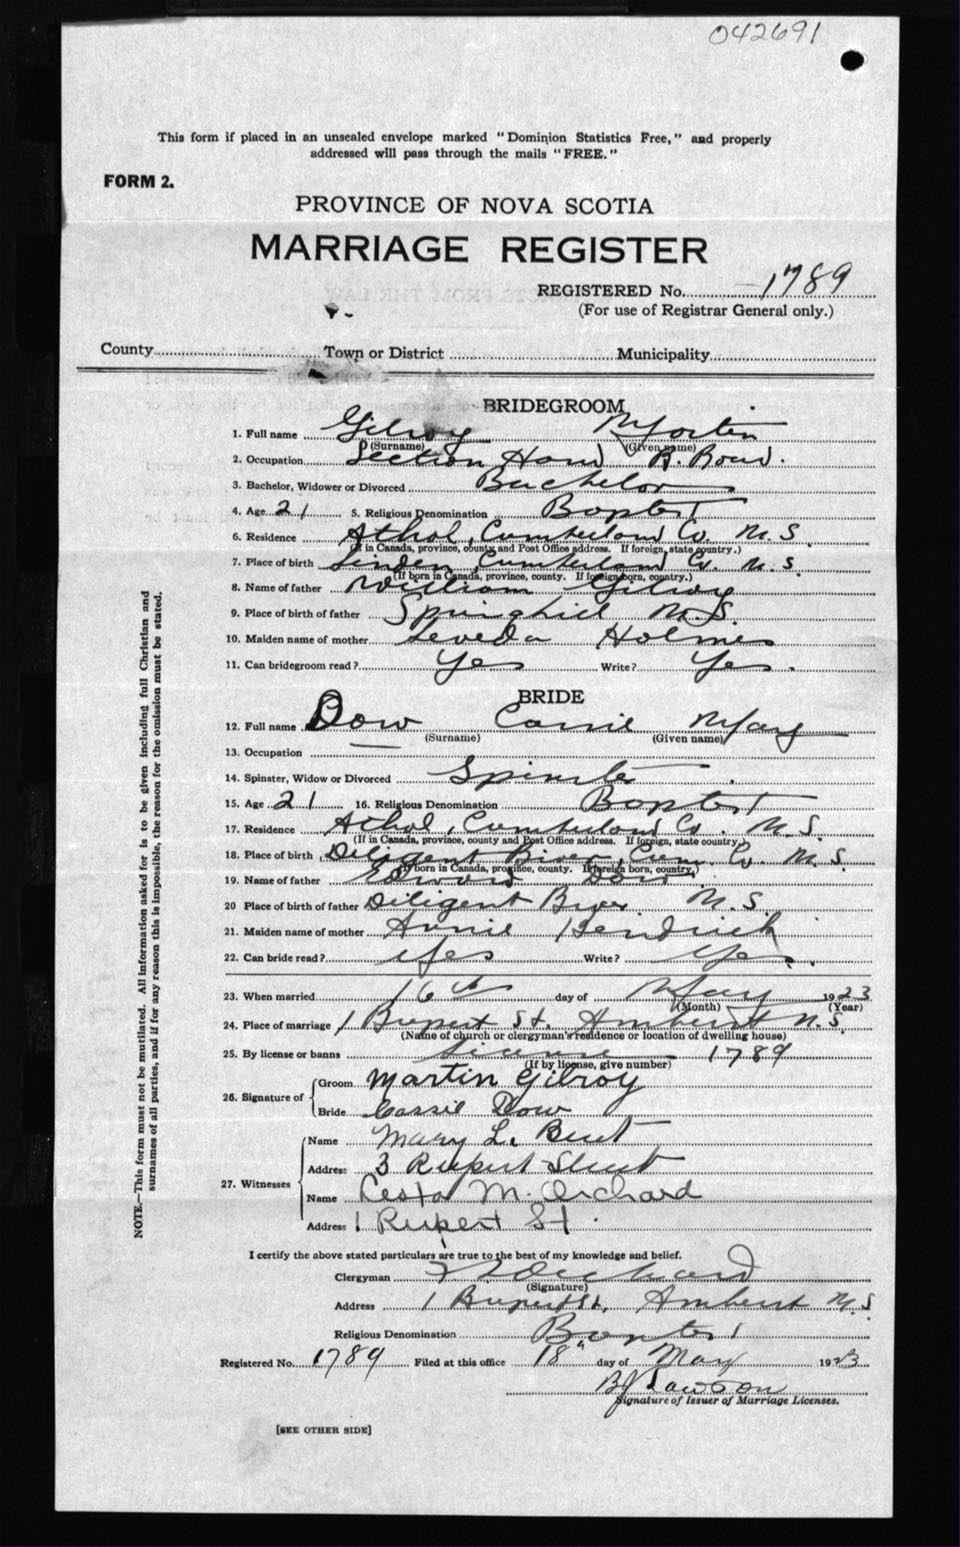 042691
This form if placed in an unsealed envelope marked "Dominion Statistics Free," and properly
addressed will pass through the mails "FREE."
FORM 2.
PROVINCE OF NOVA SCOTIA
MARRIAGE REGISTER
REGISTERED No. 1789
(For use of Registrar General only.)
County Town or District Municipality
BRIDEGROOM
1. Full name Gilroy Martin
(Surname) (Given name)
2. Occupation Section Hand R. Road.
3. Bachelor, Widower or Divorced Bachelor
4. Age 21 5. Religious Denomination Baptist
6. Residence Athol, Cumberland Co. N.S.
(If in Canada, province, county and Post Office address. If foreign, state country.)
7. Place of birth Linden, Cumberland Co. N.S.
(If born in Canada, province, county. If foreign born, country.)
8. Name of father William Gilroy
9. Place of birth of father Springhill N.S.
10. Maiden name of mother Leveda Holmes
11. Can bridegroom read? Yes Write? Yes.
BRIDE
12. Full name Dow Carrie May
(Surname) (Given name)
13. Occupation —
14. Spinster, Widow or Divorced Spinster
15. Age 21 16. Religious Denomination Baptist
17. Residence Athol, Cumberland Co. N.S.
(If in Canada, province, county and Post Office address. If foreign, state country.)
18. Place of birth Diligent River, Cum. Co. N.S.
(If born in Canada, province, county. If foreign born, country.)
19. Name of father Edward Dow
20 Place of birth of father Diligent River N.S.
21. Maiden name of mother Annie Hendrick
22. Can bride read? Yes Write? Yes.
23. When married 16th day of May 1923
(Month) (Year)
24. Place of marriage 1 Rupert St. Amherst N.S.
(Name of church or clergyman's residence or location of dwelling house)
25. By license or banns License 1789
(If by license, give number)
26. Signature of Groom Martin Gilroy
Bride Cassie Dow
27. Witnesses Name Mary L. Bent
Address 3 Rupert Street
Name M. Orchard
Address 1 Rupert St.
I certify the above stated particulars are true to the best of my knowledge and belief.
Clergyman Orchard
(Signature)
Address 1 Rupert St. Amherst N.S.
Religious Denomination Baptist
Registered No. 1789 Filed at this office 18" day of May 1923
Lawson
Signature of Issuer of Marriage Licenses.
[SEE OTHER SIDE]
NOTE.—This form must not be mutilated. All information asked for is to be given including full Christian and
surnames of all parties, and if for any reason this is impossible, the reason for the omission must be stated.